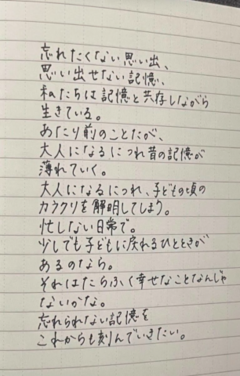 忘れたくない思い出、
思い出せない記憶、
私たちは記憶と共存しながら
生きている。
あたり前のことだが、
大人になるにつれ昔の記憶が
薄れていく。
大人になるにつれ、子どもの頃の
カラクリを解明してしまう。
忙しない日常で。
少しでも子どもに戻れるひとときが
あるのなら。
それはたらふく幸せなことなんじゃ
ないかな。
忘れられない記憶を
これからも刻んでいきたい。